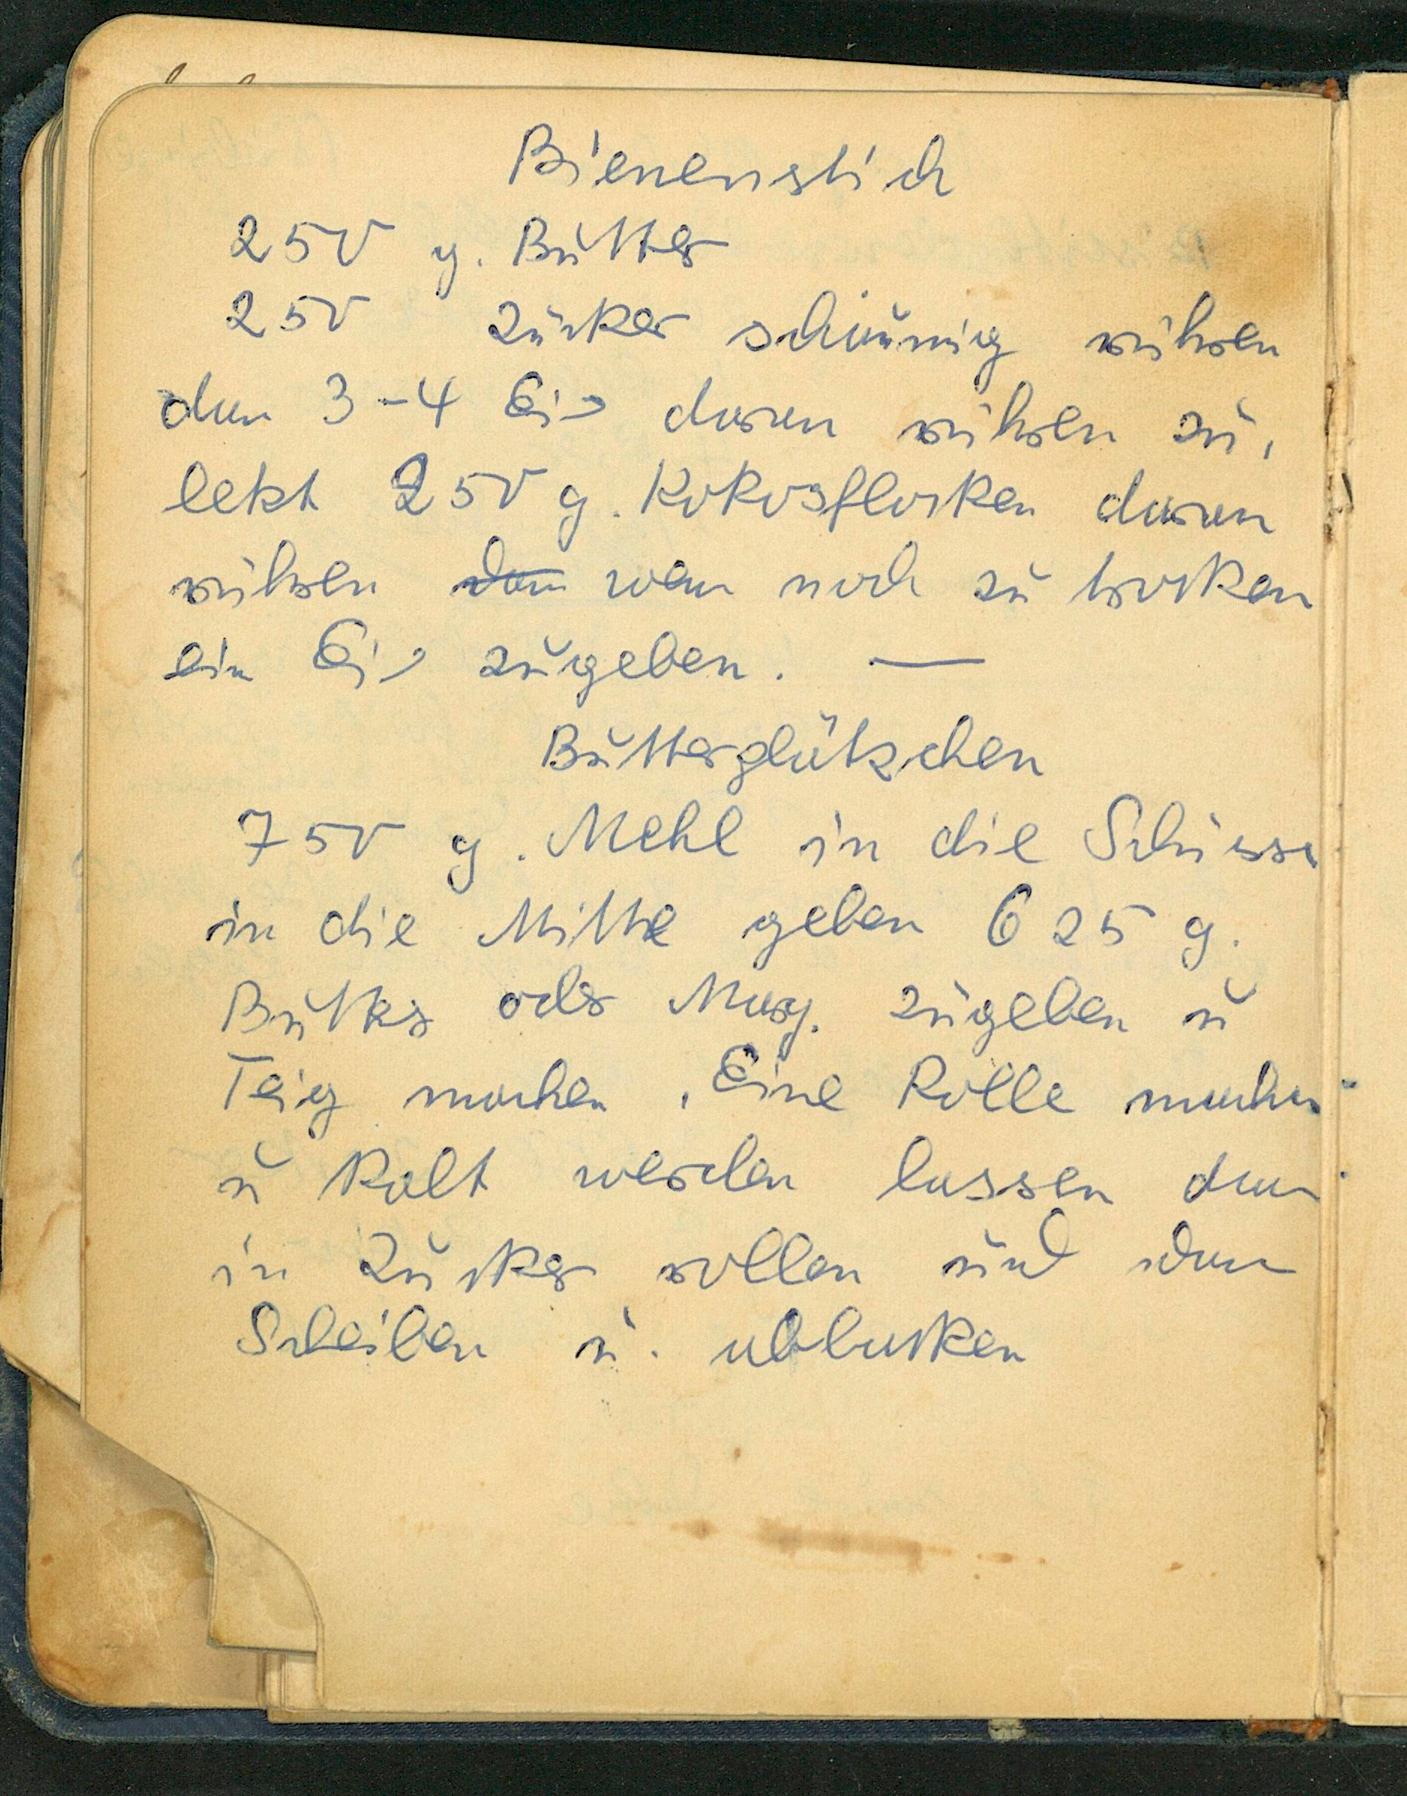 Bienenstich
250 g. Butter
250 Zucker schäumig rühren
dan 3-4 Eier daran rühren zu,
lekt 250 g. Kokosflocken daran
rühren dan wen noch zu trocken
ein Eier zugeben. —
Butterplätzchen
750 g. Mehl in die Schüssel
in die Mitte geben 625 g.
Butter oder Marg. zugeben u
Teig machen . Eine Rolle machen
u kalt werden lassen dan
in Zucker rollen und dan
Scheiben u. abbacken